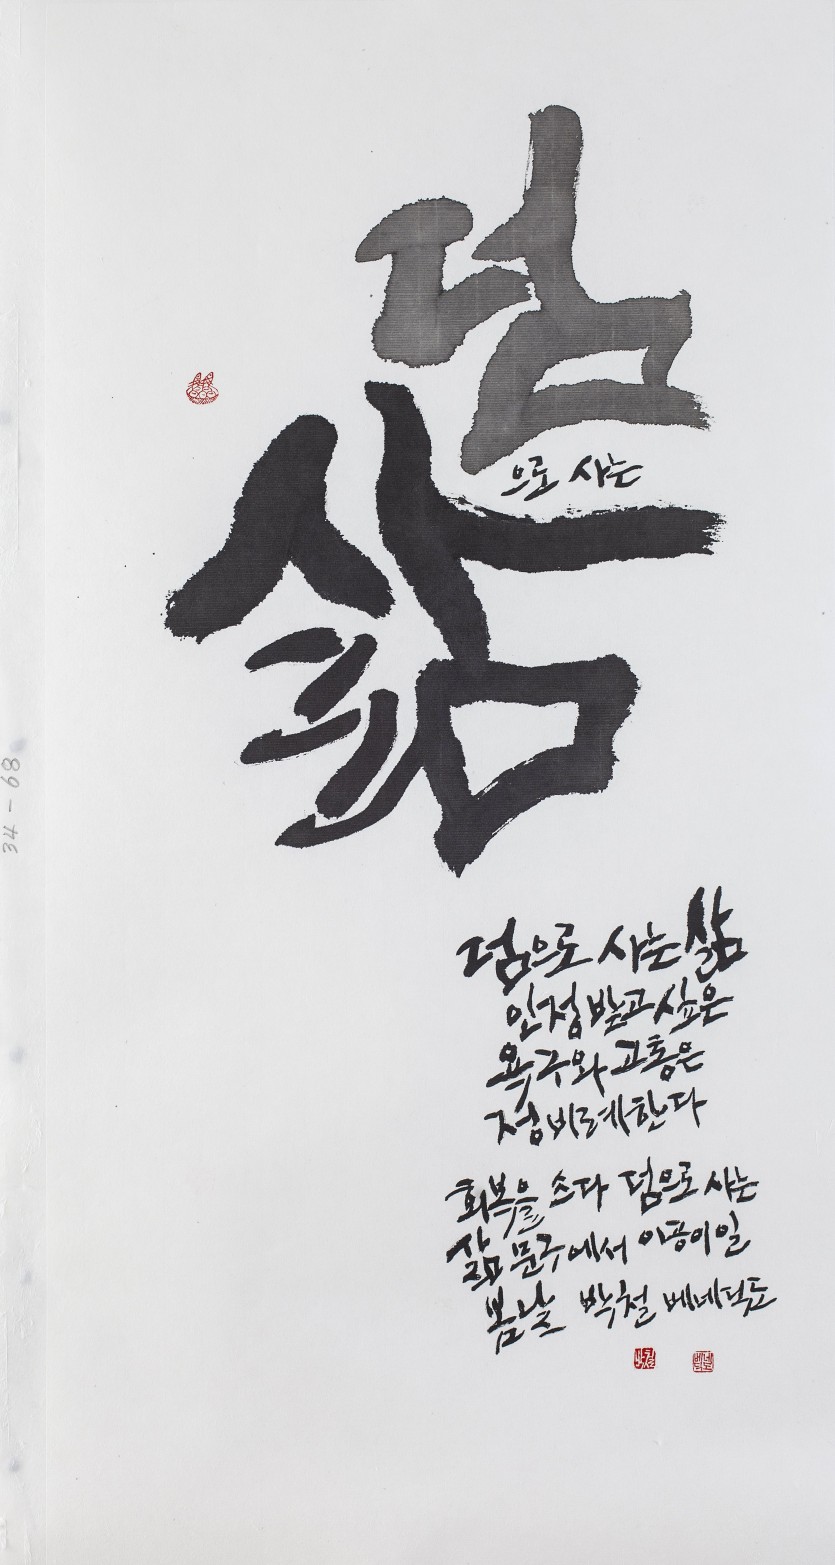 덤
으로 사는
삶
덤으로 사는 삶
인정받고 싶은
욕구와 고통은
정비례한다
회복을 쓰다 덤으로 사는
삶 문구에서 이공이일
봄날 박철 베네딕도
34-68